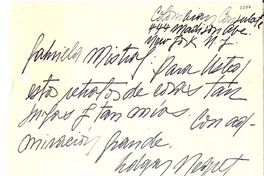 2394
Colombian Consulate
444 Madison Ave.
New York N.Y.
Gabriela Mistral: Para Usted
estos retratos de cosas tan
suyas y tan mías. Con ad-
miración grande.
Edgar Negret